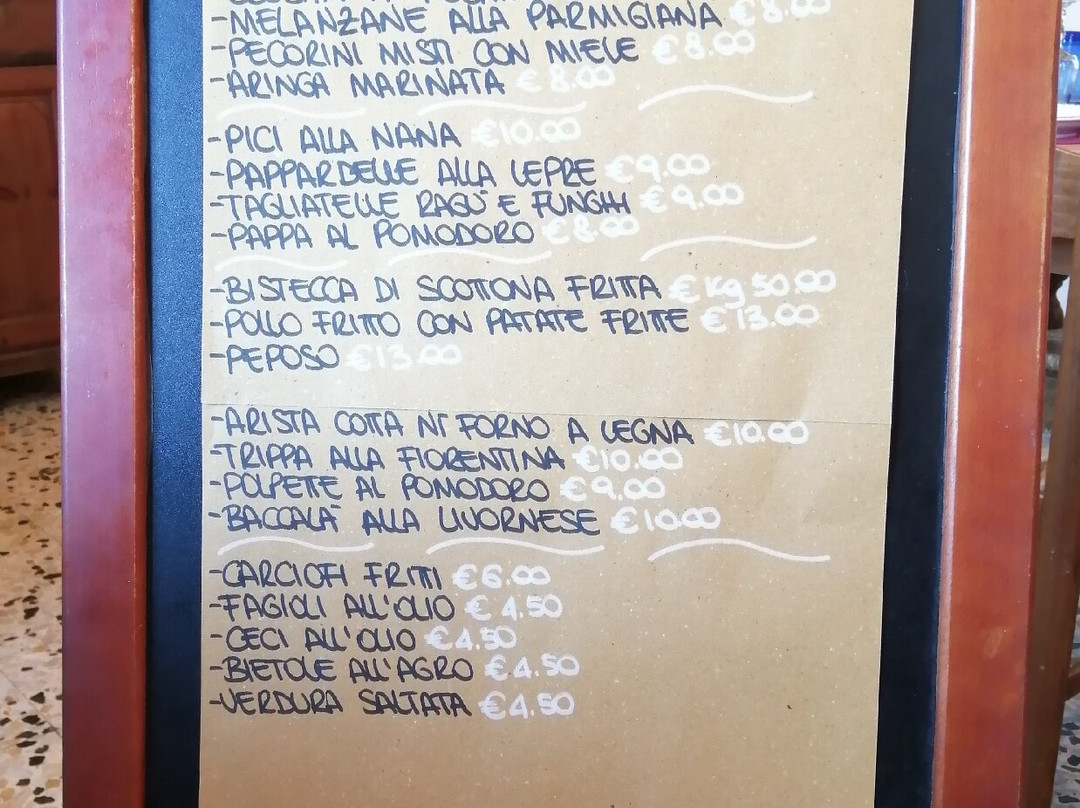 -MELANZANE ALLA PARMIGIANA € 8.00
-PECORINI MISTI CON MIELE € 8.00
-ARINGA MARINATA € 8.00
-PICI ALLA NANA €10.00
-PAPPARDELLE ALLA LEPRE €9.00
-TAGLIATELLE RAGÙ E FUNGHI €9.00
-PAPPA AL POMODORO €8.00
-BISTECCA DI SCOTTONA FRITTA € Kg 50.00
-POLLO FRITTO CON PATATE FRITTE € 13.00
-PEPOSO €13.00
-ARISTA COTTA NI' FORNO A LEGNA €10.00
-TRIPPA ALLA FIORENTINA €10.00
-POLPETTE AL POMODORO €9.00
-BACCALÀ ALLA LIVORNESE €10.00
-CARCIOFI FRITTI €6.00
-FAGIOLI ALL'OLIO € 4.50
-CECI ALL'OLIO €4.50
-BIETOLE ALL'AGRO €4.50
-VERDURA SALTATA €4.50